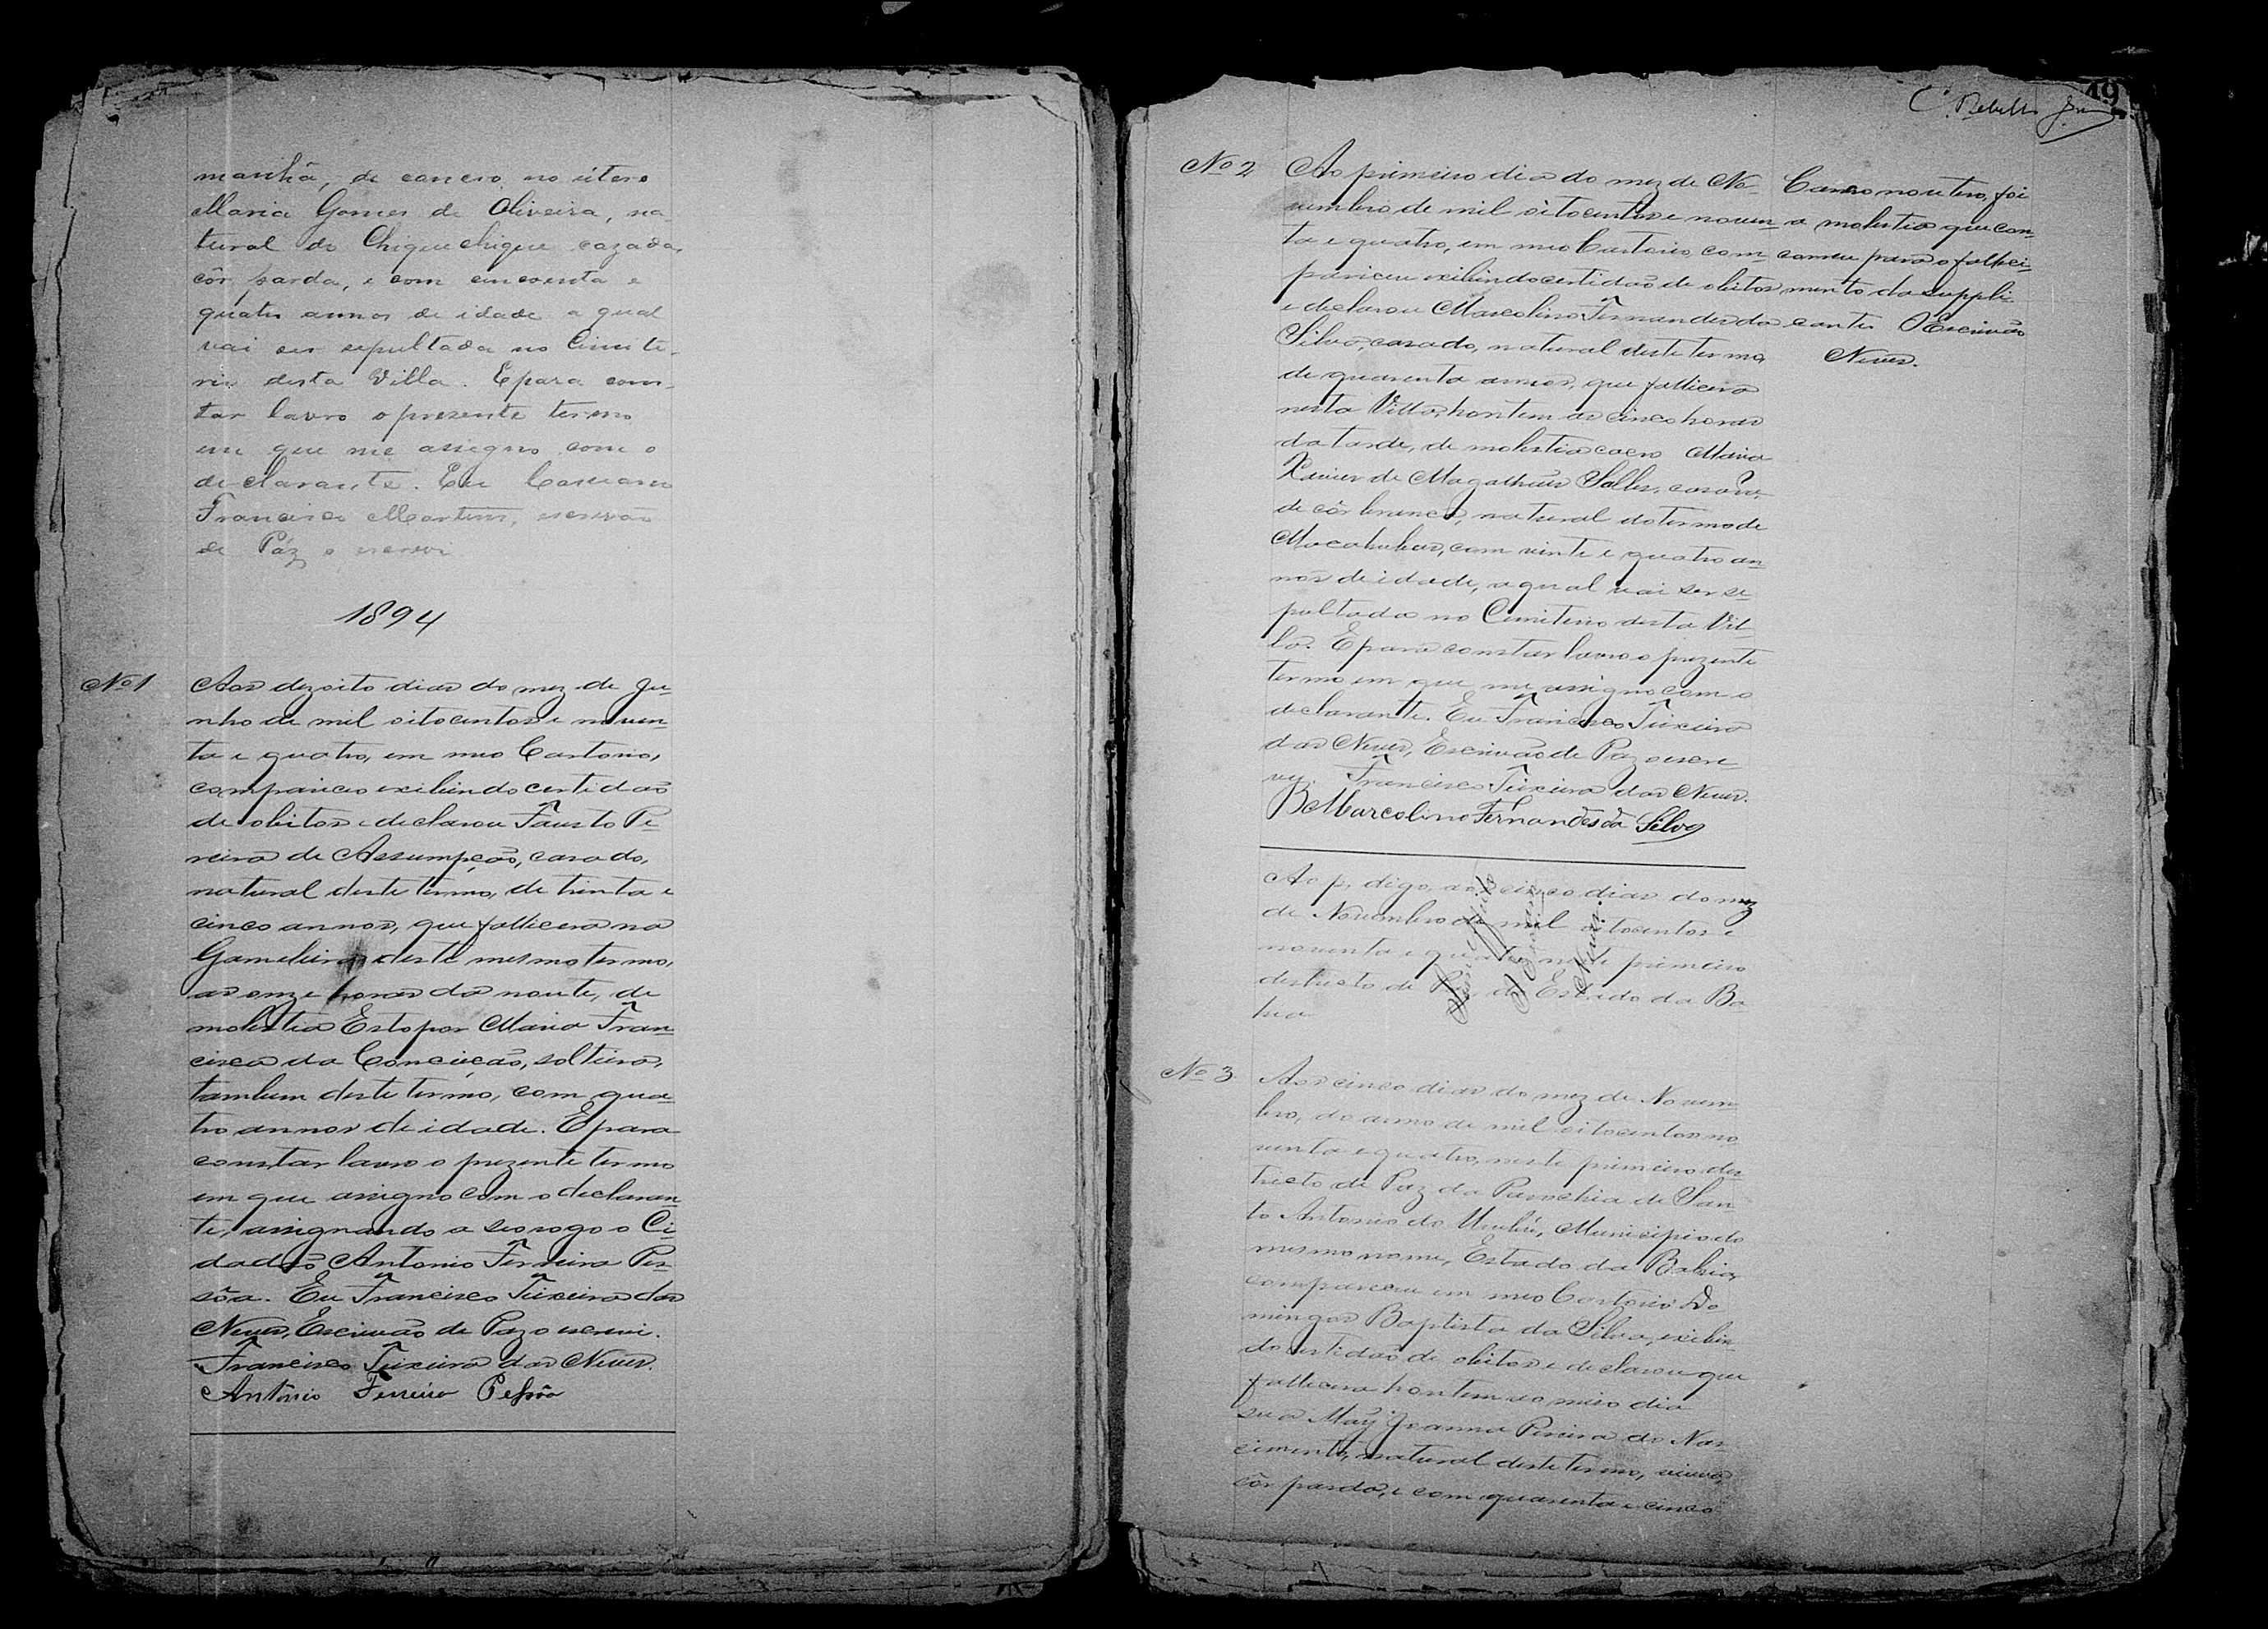 manhã, de cancro no utero
Maria Gomes de Oliveira, na-
tural de Chiquechique cazada,
côr parda, e com cincoenta e
quatro annos de idade a qual
vai ser sepultada no Cimite-
rio desta Villa. E para cons-
tar lavro o presente termo
em que me assigno com o
declarante. Eu Cassiano
Francisco Martins, escrivão
de Páz o escrevi
1894
No 1
Aos dezoito dias do mez de Ju-
nho de mil oitocentos e noven-
ta e quatro, em meo Cartorio,
compareceo exibindo certidaõ
de obitos e declarou Fausto Pe-
reira de Assumpçaõ, casado,
natural deste termo, de trinta e
cinco annos, que fallecera na
Gamelleira deste mesmo termo,
as onze horas da noute, de
molestia Estopor Maria Fran-
cisca da Conceiçaõ, solteira,
tambem deste termo, com qua-
tro annos de idade. E para
constar lavro o prezente termo
em que assigno com o declaran-
te, assignando a seo rogo o Ci-
dadaõ Antonio Ferreira Pes-
sôa. Eu Francisco Teixeira das
Neves, Escrivaõ de Paz o escrevi.
Francisco Teixeira das Neves.
Antônio Ferreira Pessôa
49
C. Rebello
No 2
Ao primeiro dia do mez de No-
vembro de mil oitocentos e noven-
ta e quatro, em meo Cartorio, com-
pareceu exibindo certidaõ de obitos
e declarou Marcolino Fernandes da
Silva, casado, natural deste termo,
de quarenta annos, que fallecera
nesta Villa, hontem as cinco horas
da tarde, de molestia Maria
Xavier de Magalhães Salles, casada,
de côr branca, natural do termo de
Macahubas, com vinte e quatro an-
nos de idade, a qual vai ser se-
pultada no Cimiterio desta Vil-
la. E para constar lavro o prezente
termo em que me assigno com o
declarante. Eu Francisco Teixeira
das Neves, Escrivaõ de Paz o escre-
vy. Francisco Teixeira das Neves.
Marcolino Fernandes da Silva
Cancro no utero, foi
a molestia que con-
correu para o falleci-
mento da suppli-
cante. O Escrivaõ
Neves.
Ao p, digo, aos cinco dias do mez
de Novembro de mil oitocentos e
noventa e quatro neste primeiro
destricto de Paz, do Estado da Ba-
hia
Sem effeito
O Escrivaõ
Neves.
No 3
Aos cinco dias do mez de Novem-
bro, do anno de mil oitocentos no-
venta e quatro, neste primeiro des-
tricto de Paz da Parochia de San-
to Antonio do Urubú, Municipio do
mesmo nome, Estado da Bahia,
compareceu em meo Cartorio Do-
mingos Baptista da Silva, exibin-
do certidaõ de obitos e declarou que
fallecera hontem ao meio dia
sua Mãy Joanna Pereira do Nas-
cimento, natural deste termo, viuva,
côr parda, e com quarenta e cinco